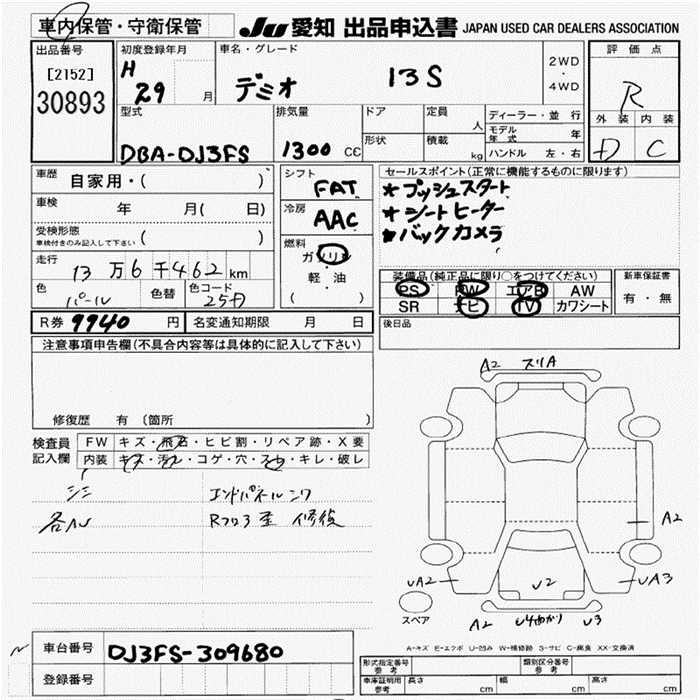 車内保管・守衛保管 JU 愛知 出品申込書 JAPAN USED CAR DEALERS ASSOCIATION
出品番号 初度登録年月 車名・グレード 評価点
[2152] H 29 月 デミオ 13S 2WD・4WD R
30893 型式 排気量 ドア 定員 人 ディーラー・並行 外装 内装
モデル年式 年
DBA-DJ3FS 1300 CC 形状 積載 kg ハンドル 左・右 D C
車歴 自家用・( ) シフト FAT セールスポイント(正常に機能するものに限ります)
車検 年 月( 日) 冷房 AAC ★プッシュスタート
★シートヒーター
受検形態 車検付きのみ記入して下さい ( ) 燃料 ガソリン ★バックカメラ
走行 13万6千462km 軽・油 装備品(純正品に限り○をつけてください) 新車保証書
色 パール 色替 色コード 25D ( ) PS PW エアB AW 有・無
SR ナビ TV カワシート
R券 9940 円 名変通知期限 月 日 後日品
注意事項申告欄(不具合内容等は具体的に記入して下さい)
修復歴 有 (箇所 )
検査員記入欄 FW キズ・飛石・ヒビ割・リペア跡・X要
内装 キズ・汚レ・コゲ・穴・スレ・キレ・破レ
エンドパネルシワ
各ル Rフロア歪 修復
A2 スリA
A2
UA2 U2 UA3
スペア A2 U4 U3
A-キズ E-エクボ U-凹み W-補修跡 S-サビ C-腐食 XX-交換済
車台番号 DJ3FS-309680
登録番号
形式指定番号 参考 類別区分番号 参考
車庫証明用 参考 長さ cm 幅 cm 高さ cm